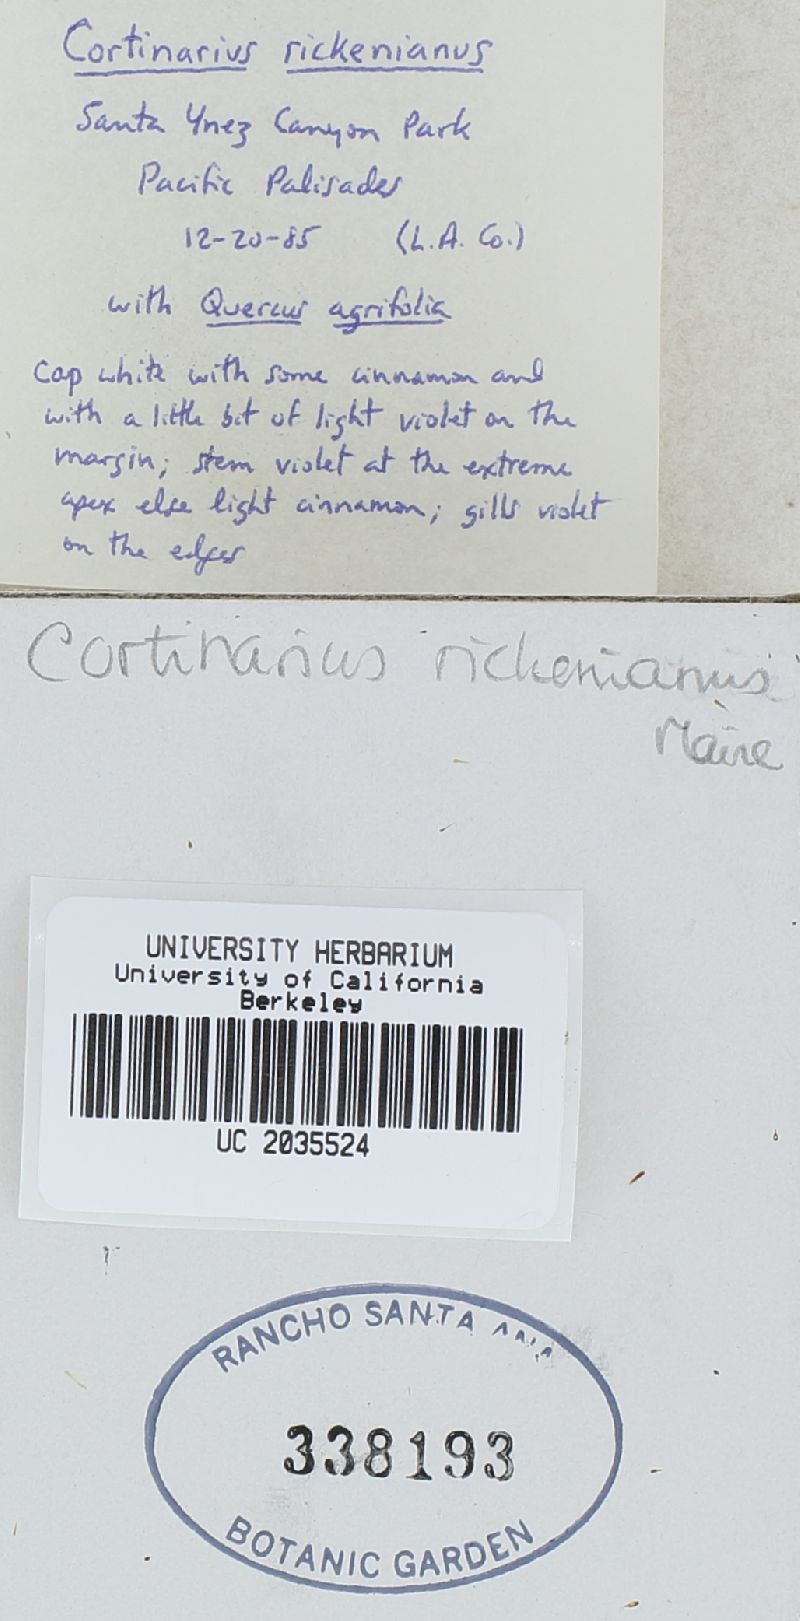 Cortinarius rickenianus
Santa Ynez Canyon Park
Pacific Palisades
12-20-85 (L.A. Co.)
with Quercus agrifolia
Cap white with some cinnamon and
with a little bit of light violet on the
margin; stem violet at the extreme
apex else light cinnamon; gills violet
on the edges
Cortinarius rickenianus
Maire
UNIVERSITY HERBARIUM
University of California
Berkeley
UC 2035524
RANCHO SANTA ANA
338193
BOTANIC GARDEN